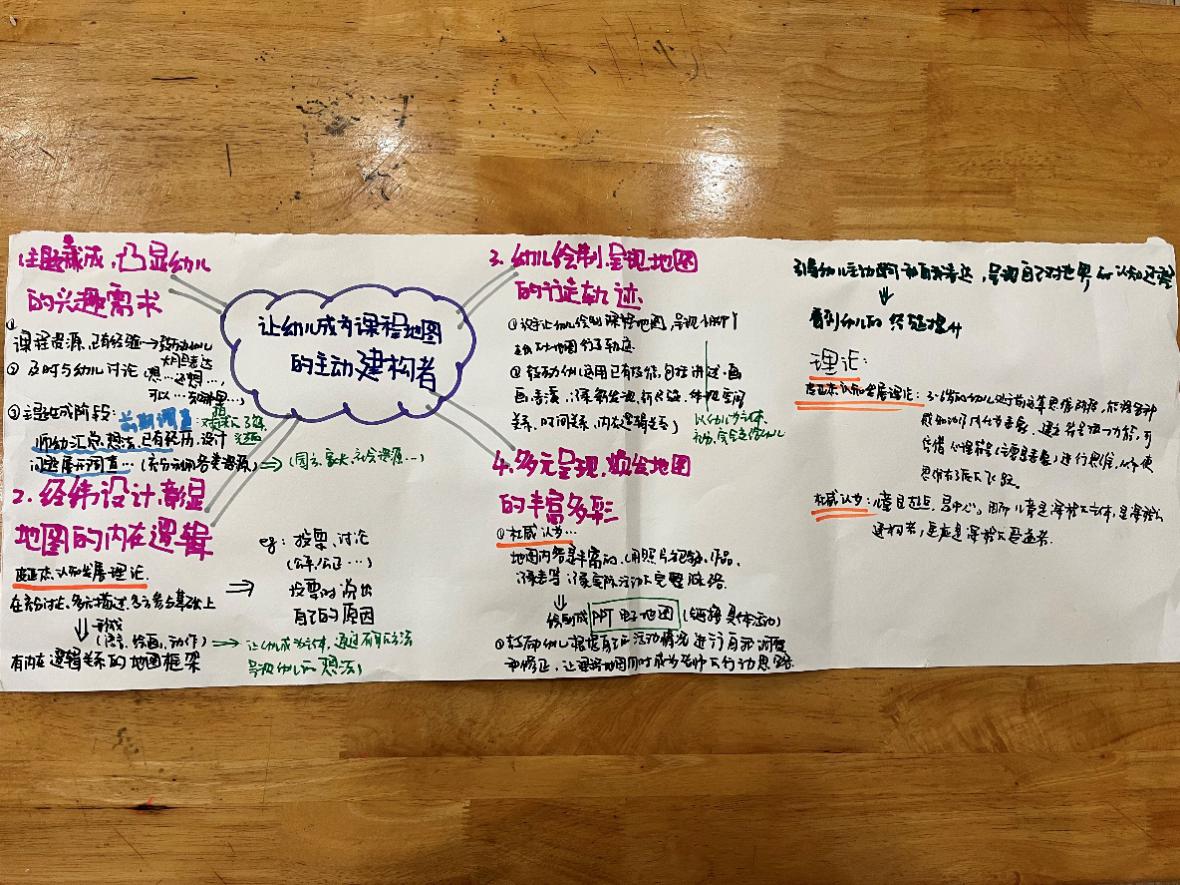 让幼儿成为课程地图
的主动建构者
1.主题藏成,凸显幼儿
的兴趣需求
①
课程资源,已有经验→鼓励幼儿
大胆表达
② 及时与幼儿讨论(想…还想…,
可以…
③主题生成阶段:前期调查
师幼汇总,想法,已有经历,设计
问题展开调查…(充分利用各类资源)
⇒(园方、家长、社会资源…)
2.经纬设计,彰显
地图的内在逻辑
皮亚杰认知发展理论
在充分讨论,多元描述,多方参与基础上
⇓形成
(语言、绘画、动作)
有内在逻辑关系的地图框架
eg:投票、讨论
(公平、公正…)
投票时说出
自己的原因
→让幼儿成为主体,通过自己的方法
呈现幼儿的想法)
3.幼儿绘制,呈现地图
的行走轨迹
①设计让幼儿绘制课程地图,呈现
地图行走轨迹
②鼓励幼儿运用已有技能,包括讲述、画
画、表演
关系、时间关系、内在逻辑关系)
以幼儿为主体,
4.多元呈现,频绘地图
的丰富多彩
①杜威认为…
地图内容是丰富的,(用照片、视频、作品,
录音等)课程实际活动的完整脉络
⇓
绘制成 PPT 电子地图 (链接具体活动)
②鼓励幼儿根据自己的活动情况进行自我调整
和修正,让课程地图同时成为老师的行动思路
引导幼儿主动的和自我表达,呈现自己对世界的认知过程
⇓
看到幼儿的经验提升
理论:
皮亚杰认知发展理论:3-6岁的幼儿处于前运算思维阶段,能将各种
感知动作内化为表象,建立符号
心理符号(主要是表象)进行思维,从而使
思维有了质的飞跃。
杜威认为:儿童是起点,是中心,因而儿童是课程的主体,是课程的
建构者,更应是课程的受益者.